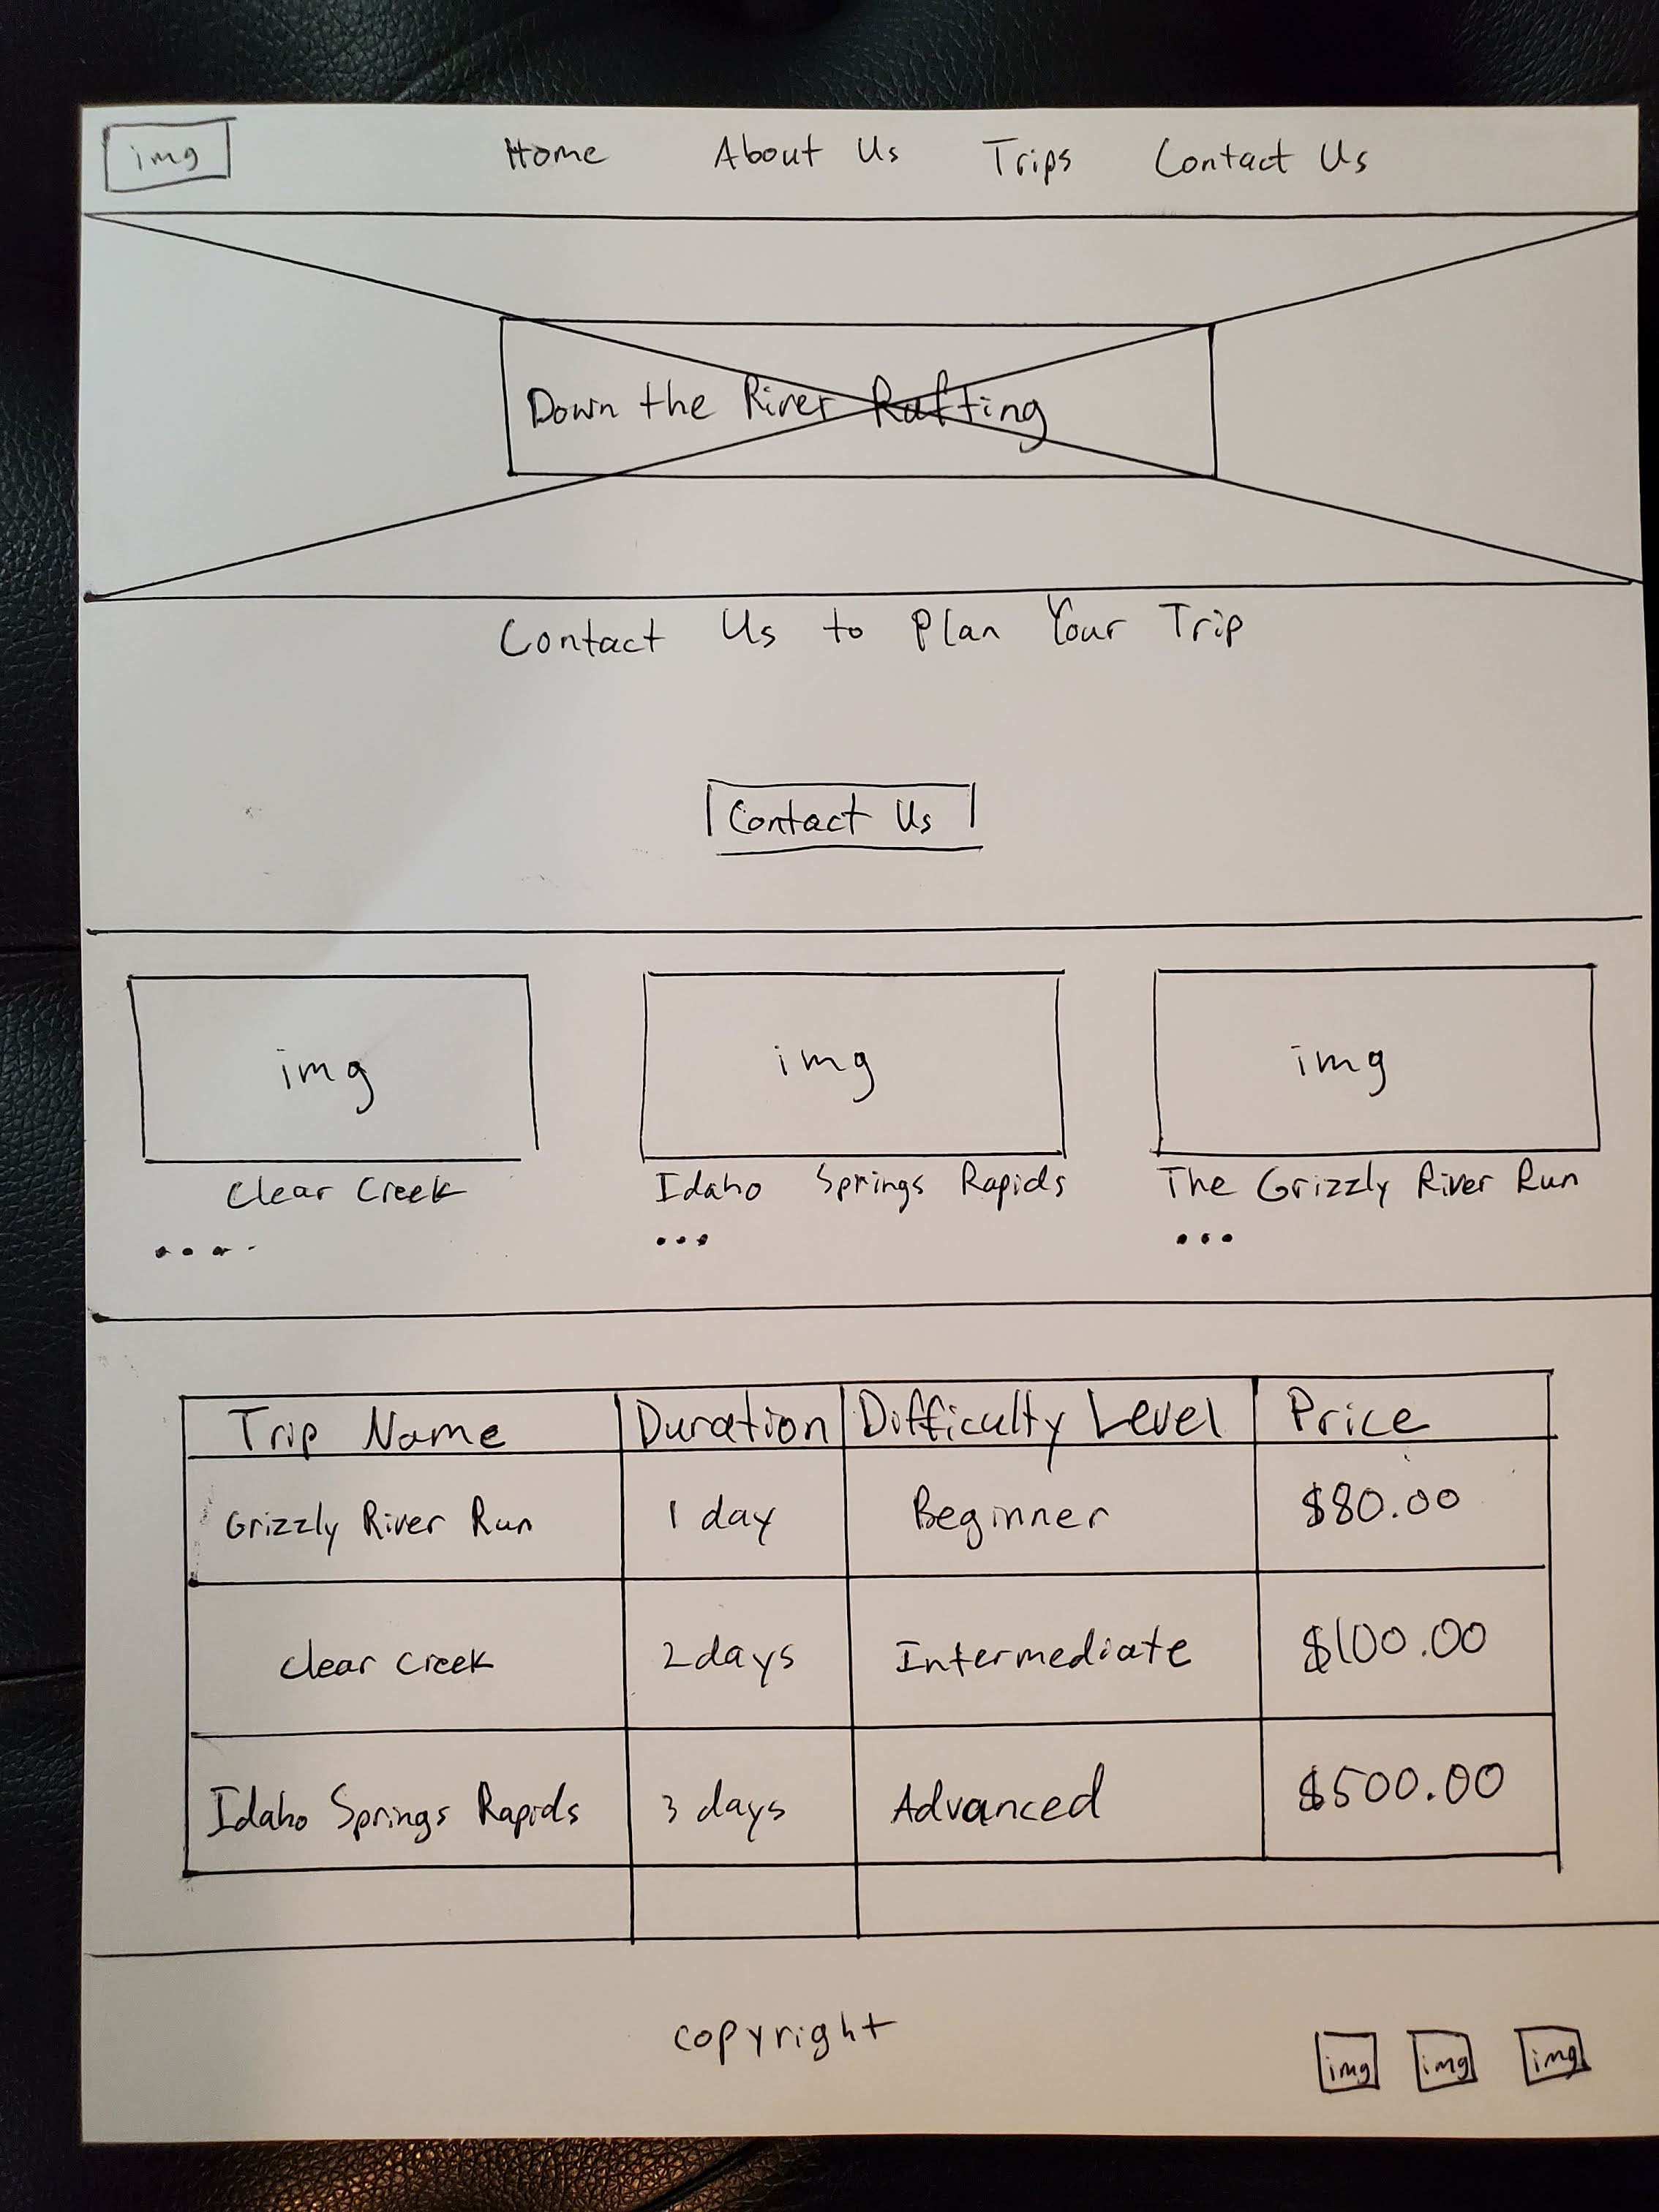 img Home About Us Trips Contact Us
Down the River Rafting
Contact Us to Plan Your Trip
Contact Us
img img img
Clear Creek Idaho Springs Rapids The Grizzly River Run
.... ... ...
Trip Name Duration Difficulty Level Price
Grizzly River Run 1 day Beginner $80.00
Clear Creek 2 days Intermediate $100.00
Idaho Springs Rapids 3 days Advanced $500.00
copyright
img img img